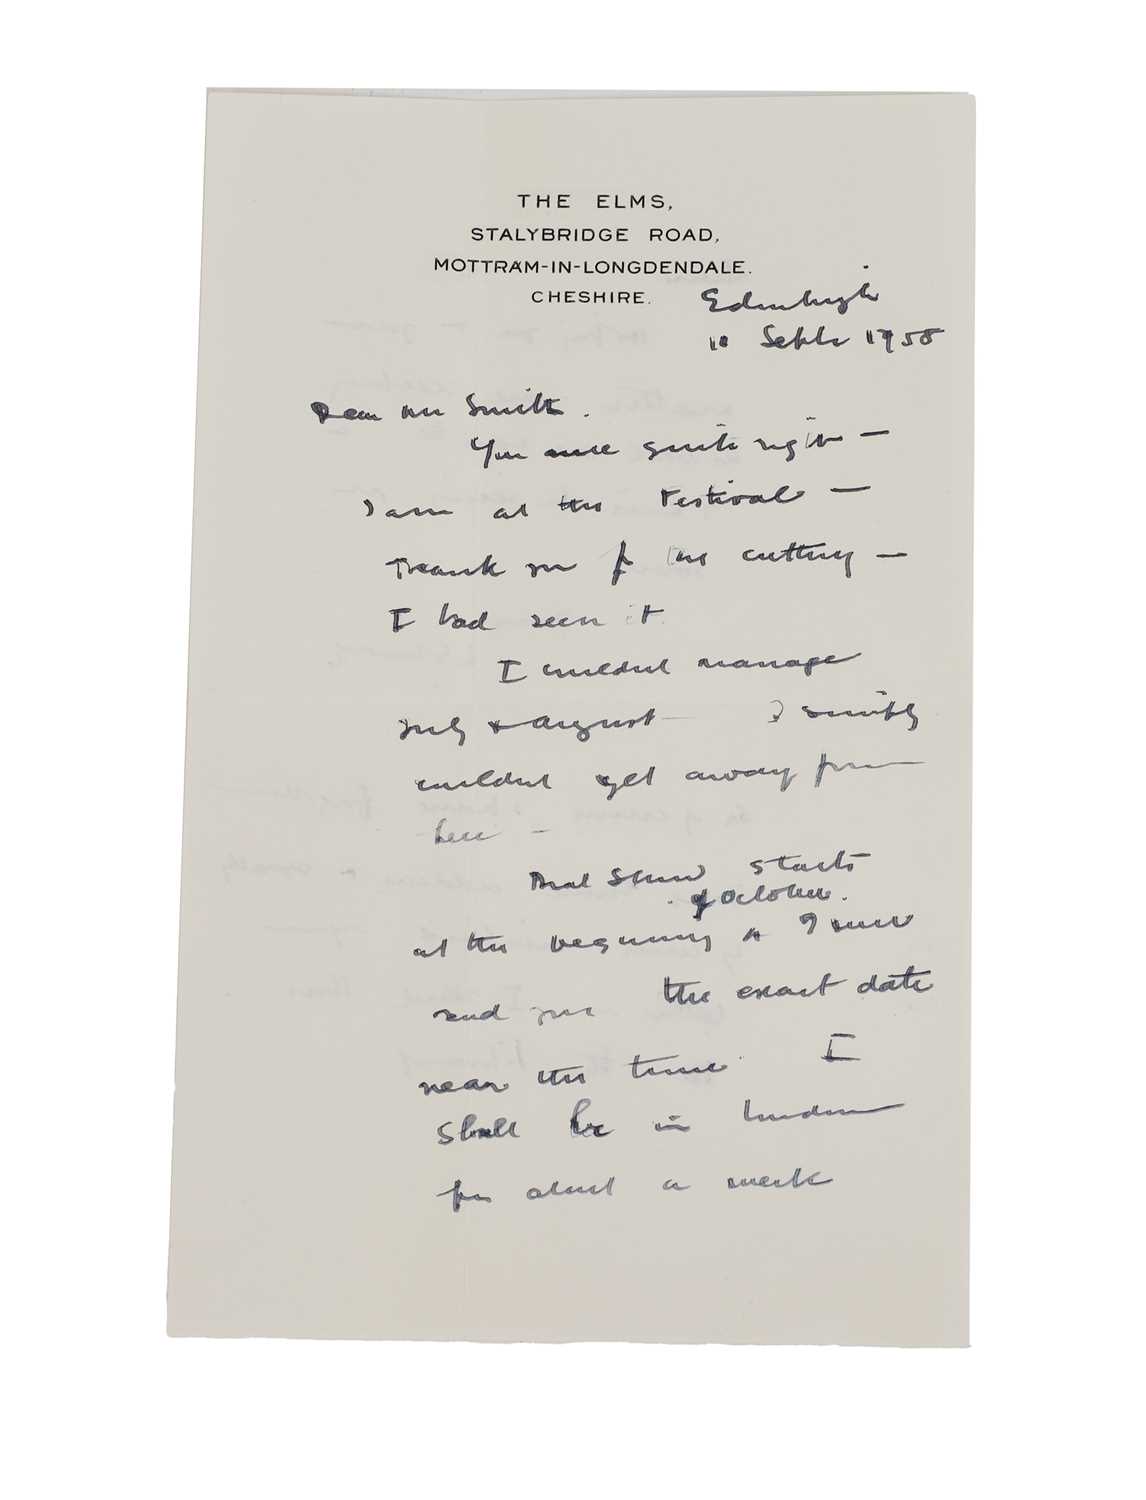 THE ELMS,
STALYBRIDGE ROAD,
MOTTRAM-IN-LONGDENDALE.
CHESHIRE.
Edinburgh
Septbr 1958
Dear Mr Smith.
You were quite right —
I am at the Festival —
Thank you for the cutting —
I had seen it
I couldnt manage
July & August I simply
couldnt get away from
here —
That Show starts
of October.
at the beginning &
send you the exact date
near the time I
shall be in London
for about a week